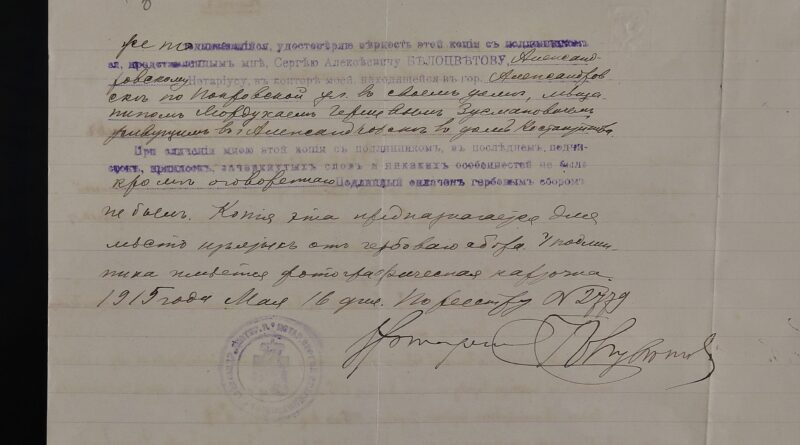 нижеподписавшійся, удостовѣряю вѣрность этой копіи съ подлинникомъ
ея, представленнымъ мнѣ, Сергѣю Алексѣевичу БѢЛОЦВѢТОВУ, Александ-
ровскому Нотаріусу, въ конторѣ моей, находящейся въ гор. Александров
скѣ по Покровской ул. въ своемъ домѣ, мѣща-
ниномъ Мордухаемъ Гершовымъ Зусмановичемъ,
живущимъ въ г. Александровскѣ въ домѣ
При сличеніи мною этой копіи съ подлинникомъ, въ послѣднемъ, подчи-
стокъ, приписокъ, зачеркнутыхъ словъ и никакихъ особенностей не было
кромѣ оговореннаго Подлинный оплаченъ гербовымъ сборомъ
не былъ. Копія эта предназначается для
мѣстъ изъятыхъ отъ гербоваго сбора. У подлин-
ника имѣется фотографическая карточка.
1915 года Мая 16 дня. По реестру № 2779
Нотаріусъ